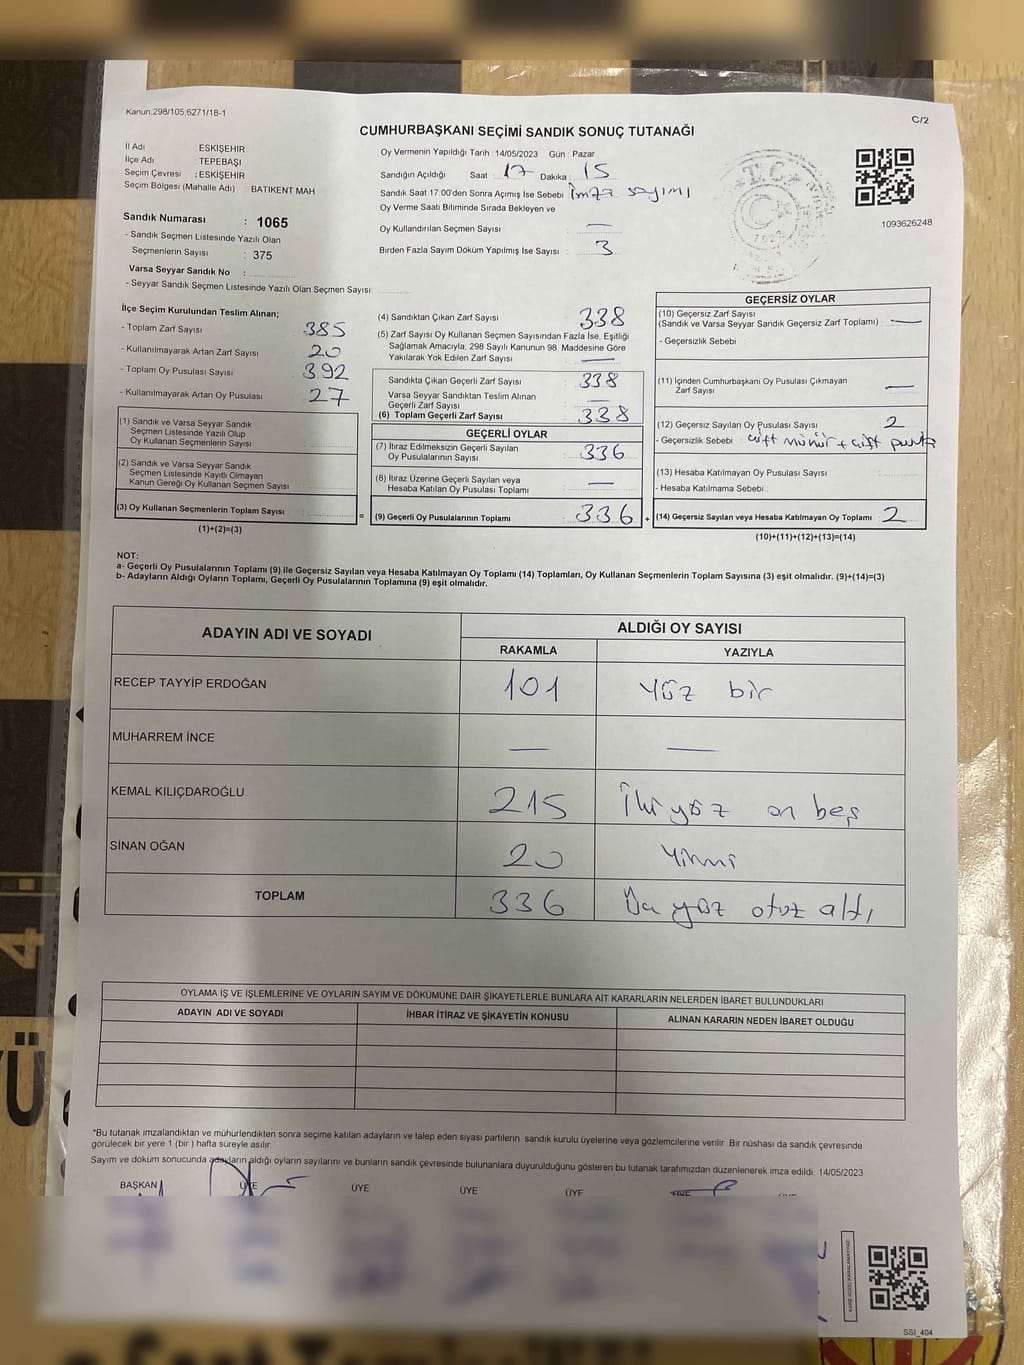 Kanun.298/105,6271/18-1
C/2
CUMHURBAŞKANI SEÇİMİ SANDIK SONUÇ TUTANAĞI
İl Adı : ESKİŞEHİR
İlçe Adı : TEPEBAŞI
Seçim Çevresi : ESKİŞEHİR
Seçim Bölgesi (Mahalle Adı) : BATIKENT MAH.
Oy Vermenin Yapıldığı Tarih : 14/05/2023 Gün : Pazar
Sandığın Açıldığı Saat : 17 Dakika : 15
Sandık Saat 17:00'den Sonra Açımış İse Sebebi : İmza sayımı
Oy Verme Saati Bitiminde Sırada Bekleyen ve
Oy Kullandırılan Seçmen Sayısı : —
Birden Fazla Sayım Döküm Yapılmış İse Sayısı : 3
T.C.
1093626248
Sandık Numarası : 1065
- Sandık Seçmen Listesinde Yazılı Olan
Seçmenlerin Sayısı : 375
Varsa Seyyar Sandık No :
- Seyyar Sandık Seçmen Listesinde Yazılı Olan Seçmen Sayısı:
İlçe Seçim Kurulundan Teslim Alınan;
- Toplam Zarf Sayısı : 385
- Kullanılmayarak Artan Zarf Sayısı : 20
- Toplam Oy Pusulası Sayısı : 392
- Kullanılmayarak Artan Oy Pusulası : 27
(1) Sandık ve Varsa Seyyar Sandık
Seçmen Listesinde Yazılı Olup
Oy Kullanan Seçmenlerin Sayısı :
(2) Sandık ve Varsa Seyyar Sandık
Seçmen Listesinde Kayıtlı Olmayan
Kanun Gereği Oy Kullanan Seçmen Sayısı :
(3) Oy Kullanan Seçmenlerin Toplam Sayısı :
(1)+(2)=(3)
(4) Sandıktan Çıkan Zarf Sayısı : 338
(5) Zarf Sayısı Oy Kullanan Seçmen Sayısından Fazla İse, Eşitliği
Sağlamak Amacıyla, 298 Sayılı Kanunun 98. Maddesine Göre
Yakılarak Yok Edilen Zarf Sayısı : —
Sandıkta Çıkan Geçerli Zarf Sayısı : 338
Varsa Seyyar Sandıktan Teslim Alınan
Geçerli Zarf Sayısı : —
(6) Toplam Geçerli Zarf Sayısı : 338
GEÇERLİ OYLAR
(7) İtiraz Edilmeksizin Geçerli Sayılan
Oy Pusulalarının Sayısı : 336
(8) İtiraz Üzerine Geçerli Sayılan veya
Hesaba Katılan Oy Pusulası Toplamı : —
=
(9) Geçerli Oy Pusulalarının Toplamı : 336
+
GEÇERSİZ OYLAR
(10) Geçersiz Zarf Sayısı
(Sandık ve Varsa Seyyar Sandık Geçersiz Zarf Toplamı) : —
- Geçersizlik Sebebi
(11) İçinden Cumhurbaşkanı Oy Pusulası Çıkmayan
Zarf Sayısı : —
(12) Geçersiz Sayılan Oy Pusulası Sayısı : 2
- Geçersizlik Sebebi : çift mühür + çift
(13) Hesaba Katılmayan Oy Pusulası Sayısı :
- Hesaba Katılmama Sebebi :
(14) Geçersiz Sayılan veya Hesaba Katılmayan Oy Toplamı : 2
(10)+(11)+(12)+(13)=(14)
NOT:
a- Geçerli Oy Pusulalarının Toplamı (9) ile Geçersiz Sayılan veya Hesaba Katılmayan Oy Toplamı (14) Toplamları, Oy Kullanan Seçmenlerin Toplam Sayısına (3) eşit olmalıdır. (9)+(14)=(3)
b- Adayların Aldığı Oyların Toplamı, Geçerli Oy Pusulalarının Toplamına (9) eşit olmalıdır.
ADAYIN ADI VE SOYADI
ALDIĞI OY SAYISI
RAKAMLA YAZIYLA
RECEP TAYYİP ERDOĞAN 101 yüz bir
MUHARREM İNCE — —
KEMAL KILIÇDAROĞLU 215 İki yüz on beş
SİNAN OĞAN 20 yirmi
TOPLAM 336 Üç yüz otuz altı
OYLAMA İŞ VE İŞLEMLERİNE VE OYLARIN SAYIM VE DÖKÜMÜNE DAİR ŞİKAYETLERLE BUNLARA AİT KARARLARIN NELERDEN İBARET BULUNDUKLARI
ADAYIN ADI VE SOYADI İHBAR İTİRAZ VE ŞİKAYETİN KONUSU ALINAN KARARIN NEDEN İBARET OLDUĞU
*Bu tutanak imzalandıktan ve mühürlendikten sonra seçime katılan adayların ve talep eden siyasi partilerin sandık kurulu üyelerine veya gözlemcilerine verilir. Bir nüshası da sandık çevresinde
görülecek bir yere 1 (bir ) hafta süreyle asılır.
Sayım ve döküm sonucunda adayların aldığı oyların sayılarını ve bunların sandık çevresinde bulunanlara duyurulduğunu gösteren bu tutanak tarafımızdan düzenlenerek imza edildi. 14/05/2023
BAŞKAN ÜYE ÜYE ÜYE ÜYE ÜYE
SSI_404